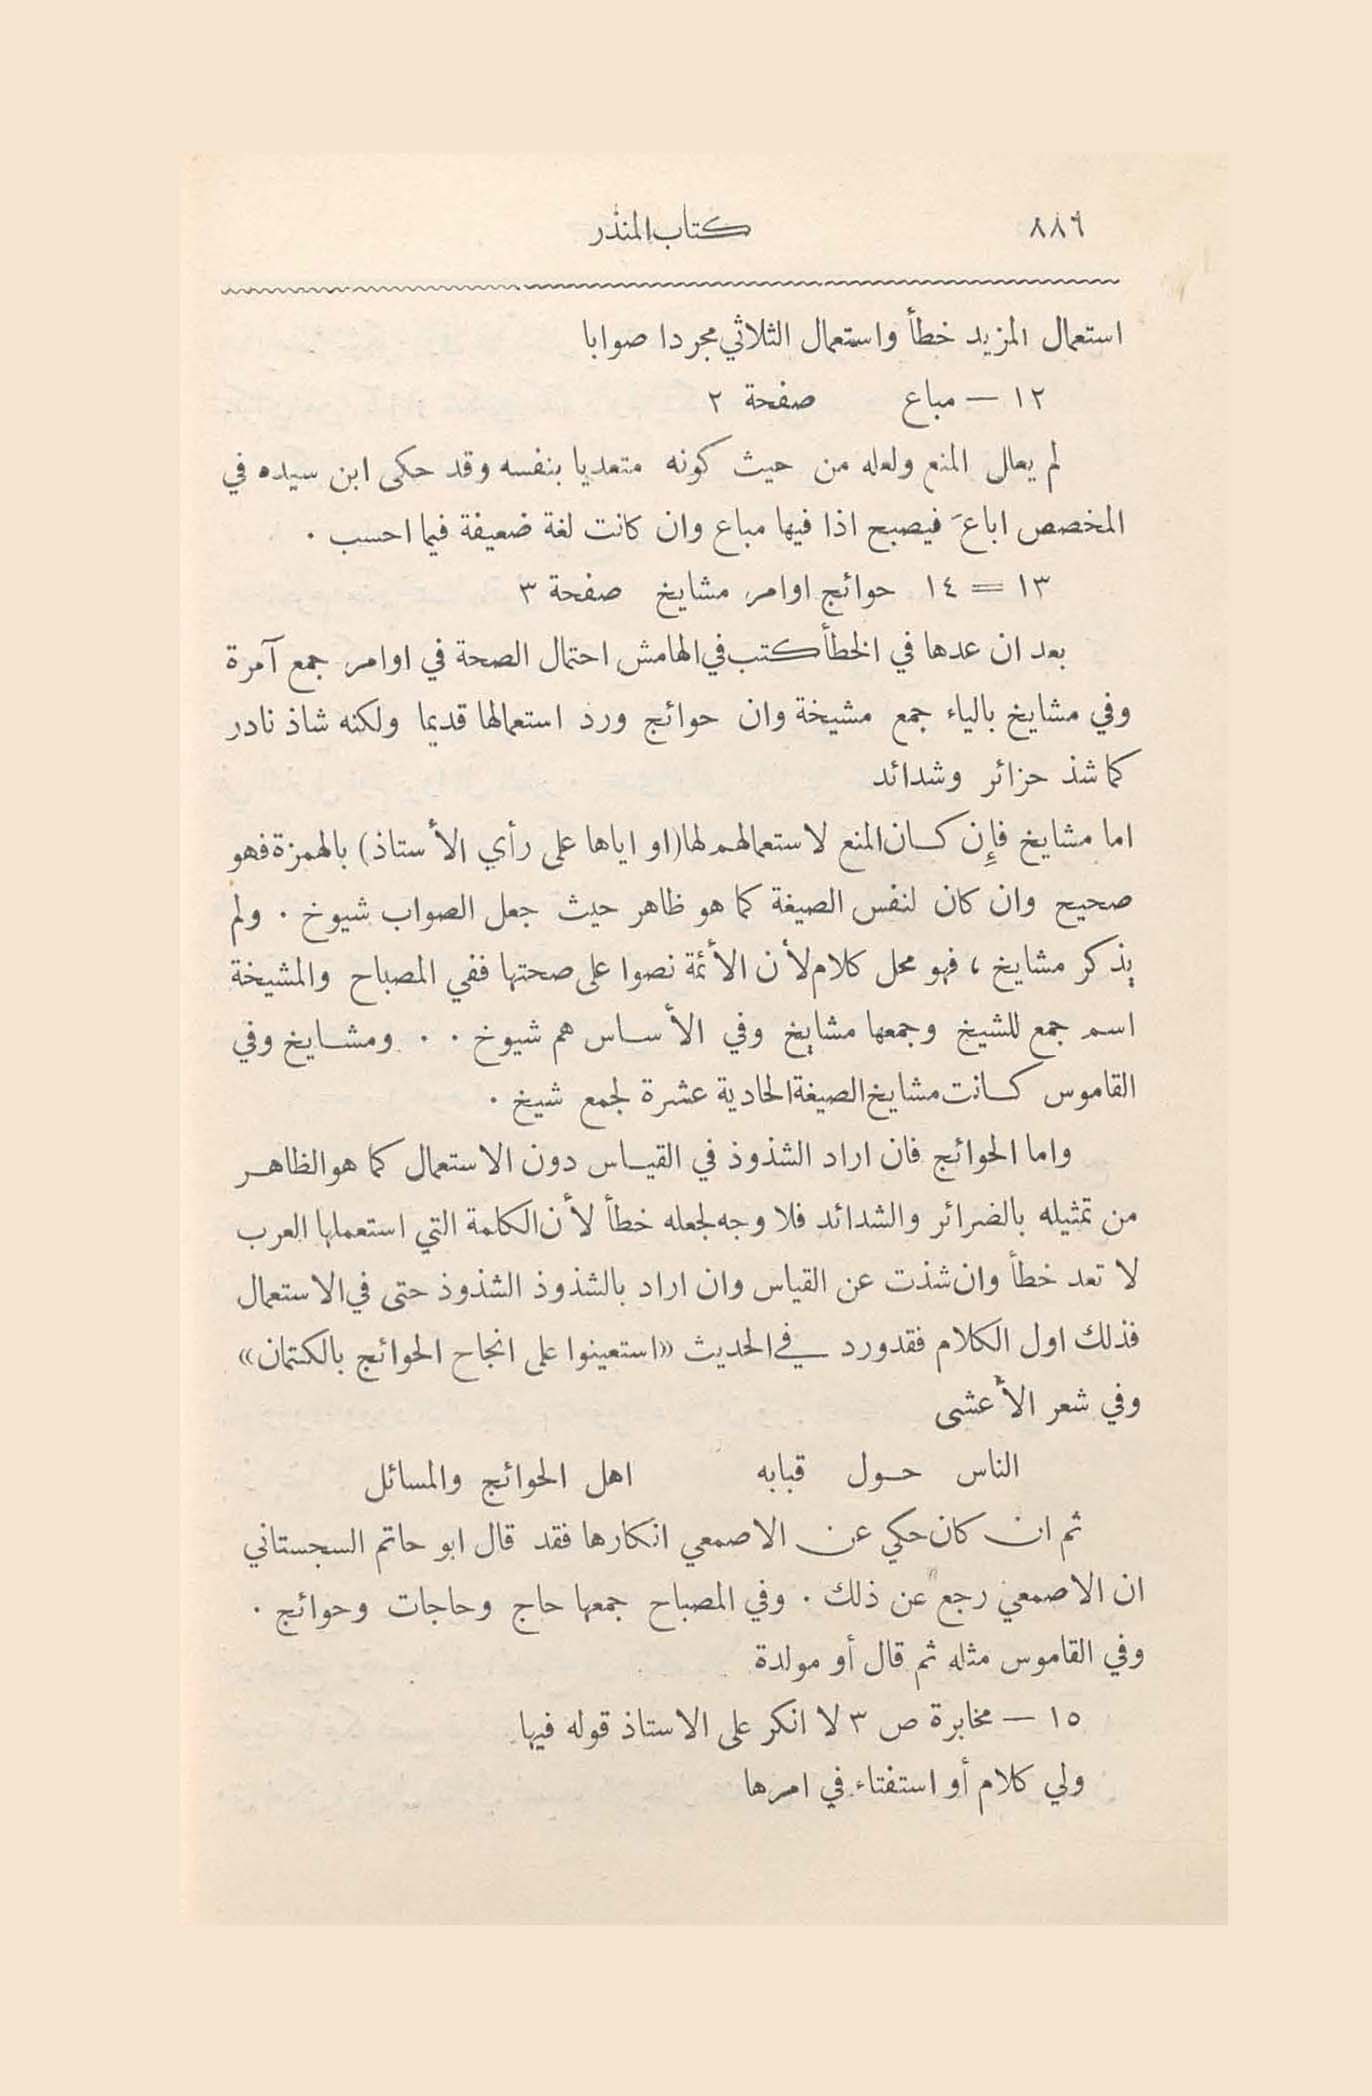 ٨٨٦ كتاب المنذر
استعمال المزيد خطأ واستعمال الثلاثي مجردا صوابا
١٢ — مباع صفحة ٢
لم يعلل المنع ولعله من حيث كونه متعديا بنفسه وقد حكى ابن سيده في
المخصص اباعَ فيصبح اذا فيها مباع وان كانت لغة ضعيفة فيما احسب .
١٣ = ١٤ حوائج اوامر مشايخ صفحة ٣
بعد ان عدها في الخطأ كتب في الهامش احتمال الصحة في اوامر جمع آمرة
وفي مشايخ بالياء جمع مشيخة وان حوائج ورد استعمالها قديما ولكنه شاذ نادر
كما شذ حزائر وشدائد
اما مشايخ فإن كان المنع لاستعمالهم لها (او اياها على رأي الأستاذ) بالهمزة فهو
صحيح وان كان لنفس الصيغة كما هو ظاهر حيث جعل الصواب شيوخ . ولم
يذكر مشايخ ، فهو محل كلام لأن الأئمة نصوا على صحتها ففي المصباح والمشيخة
اسم جمع للشيخ وجمعها مشايخ وفي الأساس هم شيوخ . . ومشايخ وفي
القاموس كانت مشايخ الصيغة الحادية عشرة لجمع شيخ .
واما الحوائج فان اراد الشذوذ في القياس دون الاستعمال كما هو الظاهر
من تمثيله بالضرائر والشدائد فلا وجه لجعله خطأ لأن الكلمة التي استعملها العرب
لا تعد خطأ وان شذت عن القياس وان اراد بالشذوذ الشذوذ حتى في الاستعمال
فذلك اول الكلام فقد ورد في الحديث «استعينوا على انجاح الحوائج بالكتمان»
وفي شعر الأعشى
الناس حول قبابه اهل الحوائج والمسائل
ثم ان كان حكي عن الاصمعي انكارها فقد قال ابو حاتم السجستاني
ان الاصمعي رجع عن ذلك . وفي المصباح جمعها حاج وحاجات وحوائج .
وفي القاموس مثله ثم قال أو مولدة
١٥ — مخابرة ص ٣ لا انكر على الاستاذ قوله فيها
ولي كلام أو استفتاء في امرها